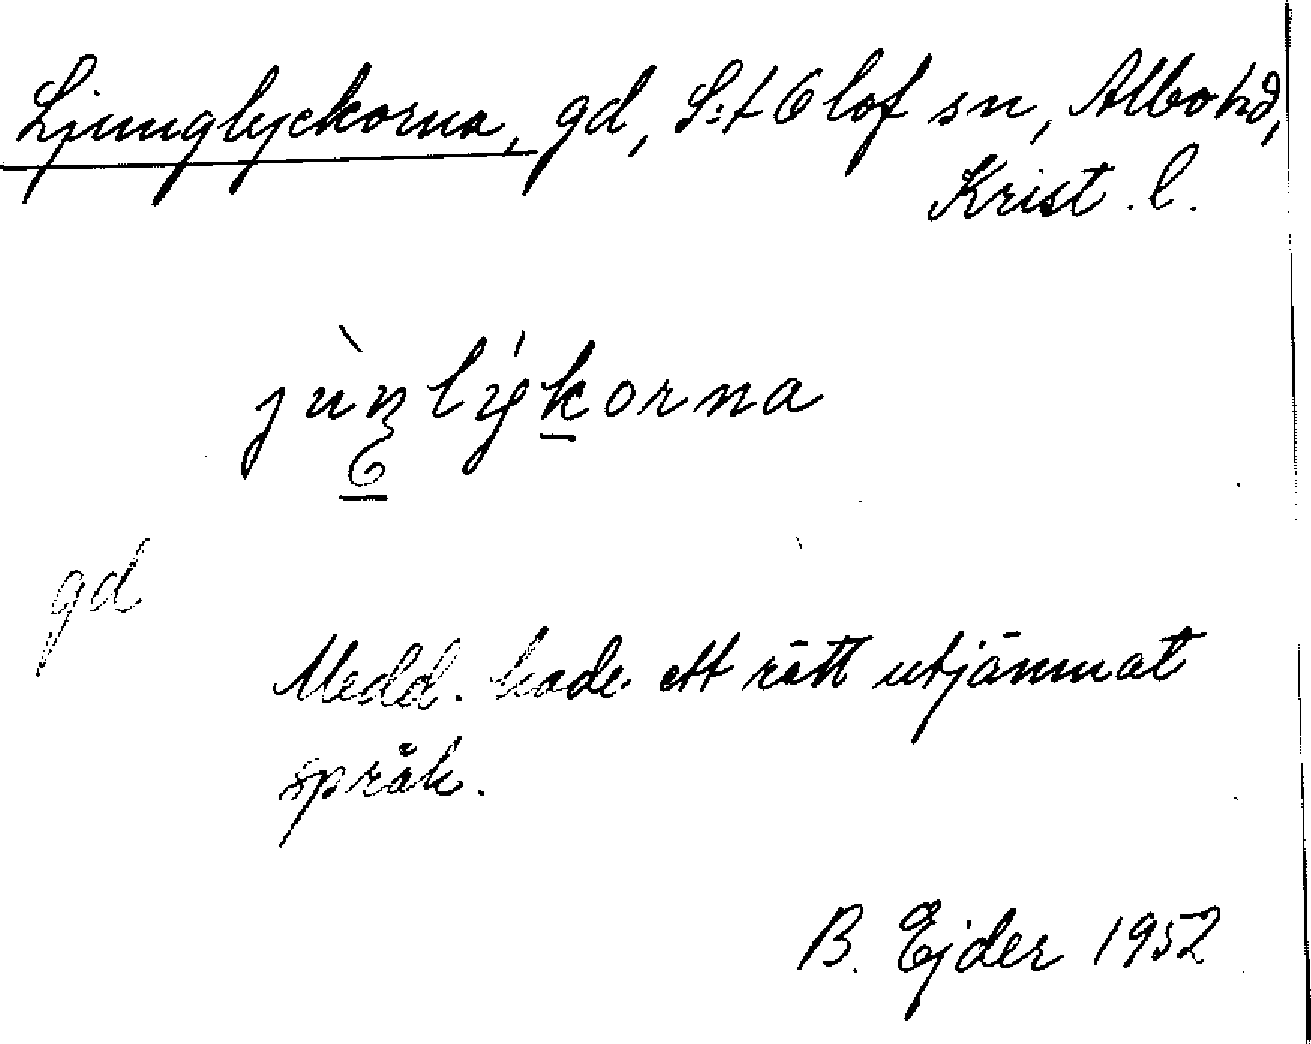 Ljunglyckorna, gd, S:t Olof sn, Albo hd,
Krist. l.
jùŋlýkorna
gd
Medd. hade ett rätt utjämnat
språk.
B. Ejder 1952